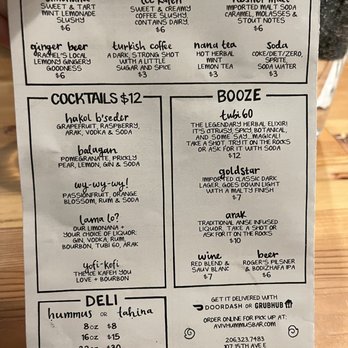 SWEET & TART
MINT LEMONADE
SLUSHY
$6
SWEET & CREAMY
COFFEE SLUSHY,
CONTAINS DAIRY.
$6
IMPORTED MALT SODA
CARAMEL, MOLASSES &
STOUT NOTES
$6
ginger beer
RACHEL'S LOCAL
LEMONY GINGERY
GOODNESS
$6
turkish coffee
A DARK, STRONG SHOT
WITH A LITTLE
SUGAR AND SPICE
$3
nana tea
HOT HERBAL
MINT
LEMON TEA
$3
Soda
COKE/DIET/ZERO,
SPRITE,
SODA WATER
$3
COCKTAILS $12
hakol b'seder
GRAPEFRUIT, RASPBERRY,
ARAK, VODKA & SODA
balagan
POMEGRANATE, PRICKLY
PEAR, LEMON, GIN & SODA
wy-wy-wy!
PASSIONFRUIT, ORANGE
BLOSSOM, RUM & SODA
lama lo?
OUR LIMONANA +
YOUR CHOICE OF LIQUOR:
GIN, VODKA, RUM,
BOURBON, TUBI 60, ARAK
yofi-kofi
THE ICE KAFEH YOU
LOVE + BOURBON
BOOZE
tubi 60
THE LEGENDARY HERBAL ELIXIR!
IT'S CITRUSY, SPICY, BOTANICAL,
AND SOME SAY... MAGICAL!
TAKE A SHOT, TRY IT ON THE ROCKS
OR ASK FOR IT WITH SODA
$12
goldstar
IMPORTED CLASSIC DARK
LAGER, GOES DOWN LIGHT
WITH A MALTY FINISH
$7
arak
TRADITIONAL ANISE INFUSED
LIQUOR, TAKE A SHOT OR
ASK FOR IT ON THE ROCKS
$10
wine
RED BLEND &
SAUV BLANC
$7
beer
ROGER'S PILSNER
& BODHIZAFA IPA
$6
DELI
hummus OR tahina
8 OZ $8
16 OZ $15
GET IT DELIVERED WITH
DOORDASH OR GRUBHUB
ORDER ONLINE FOR PICK UP AT:
AVIVHUMMUSBAR.COM
206.323.7483
107 15TH AVE E